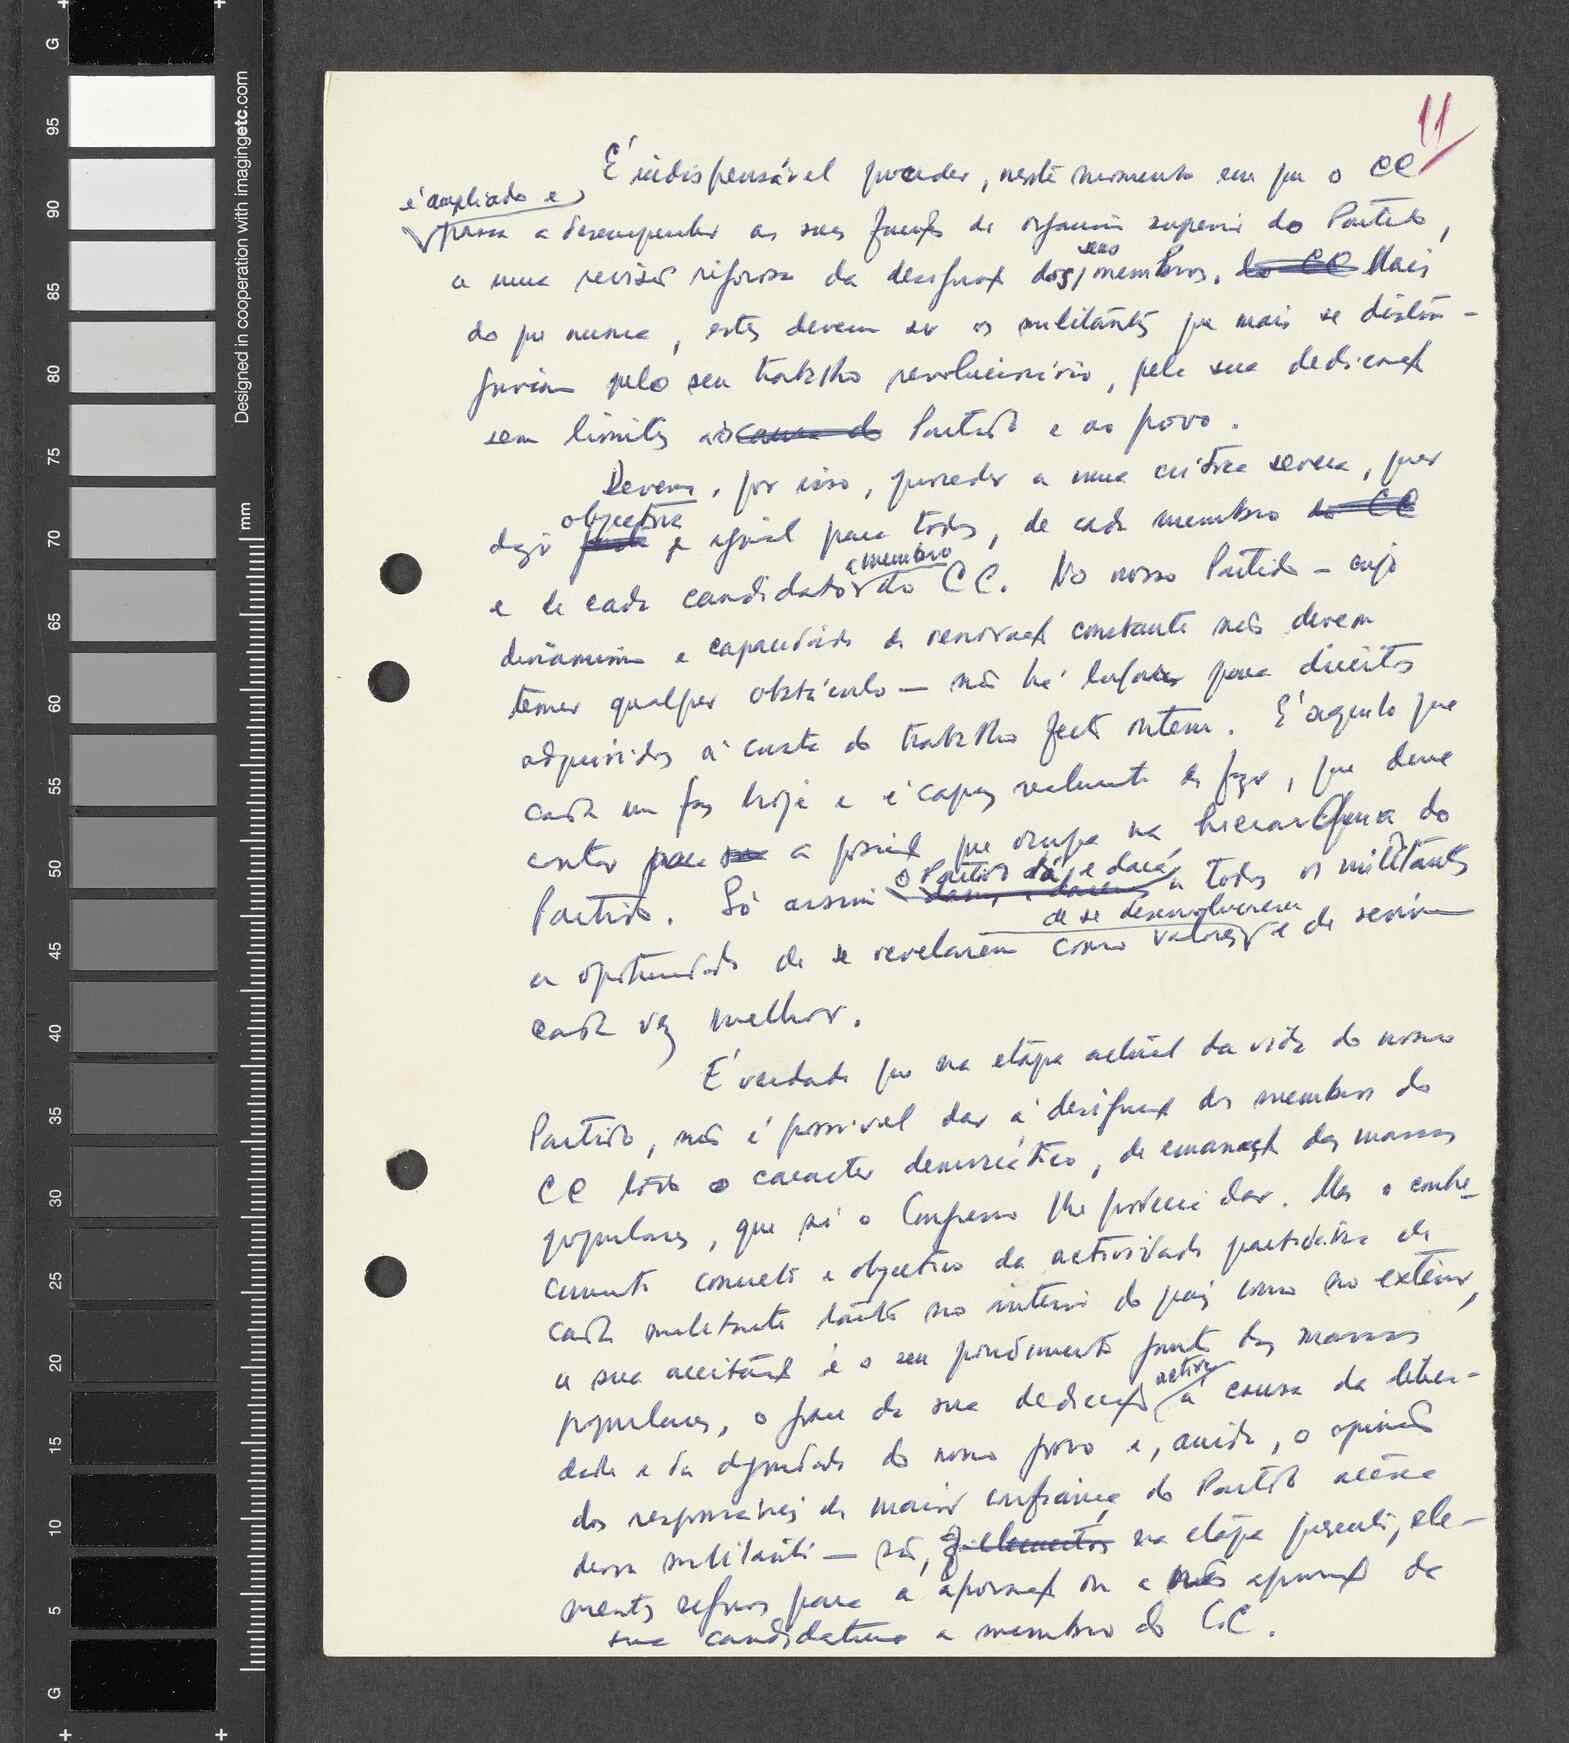 11
É indispensável proceder, neste momento em que o CC
é ampliado e
passa a desempenhar as suas funções de organismo superior do Partido,
a uma revisão rigorosa da designação dos seus membros. do CC Mais
do que nunca, estes devem ser os militantes que mais se distin-
guiram pelo seu trabalho revolucionário, pela sua dedicação
sem limites ao causa do Partido e ao povo.
Devemos, por isso, proceder a uma crítica severa, quer
dizer objectiva e igual para todos, de cada membro do CC
e de cada candidato a membro do CC. No nosso Partido — cujo
dinamismo e capacidade de renovação constante não devem
temer qualquer obstáculo — não há lugar para direitos
adquiridos à custa do trabalho feito ontem. É aquilo que
cada um faz hoje e é capaz realmente de fazer, que deve
contar para a posição que ocupa na hierarquia do
Partido. Só assim o Partido dá, e dará, a todos os militantes
a oportunidade de se revelarem como valores, de se desenvolverem e de servirem
cada vez melhor.
É verdade que na etapa actual da vida do nosso
Partido, não é possível dar à designação dos membros do
CC todo o caracter democrático, de emanação das massas
populares, que só o Congresso lhe poderia dar. Mas o conhe-
cimento concreto e objectivo da actividade partidária de
cada militante tanto no interior do país como no exterior,
a sua aceitação e o seu rendimento junto das massas
populares, o grau da sua dedicação activa à causa da liber-
dade e da dignidade do nosso povo e, ainda, a opinião
dos responsáveis de maior confiança do Partido acerca
desse militante — são, elementos na etapa presente, ele-
mentos seguros para a aprovação ou a não aprovação da
sua candidatura a membro do CC.
Designed in cooperation with imagingetc.com
mm
G
95
90
85
80
75
70
65
60
55
50
45
40
35
30
25
20
15
10
5
G